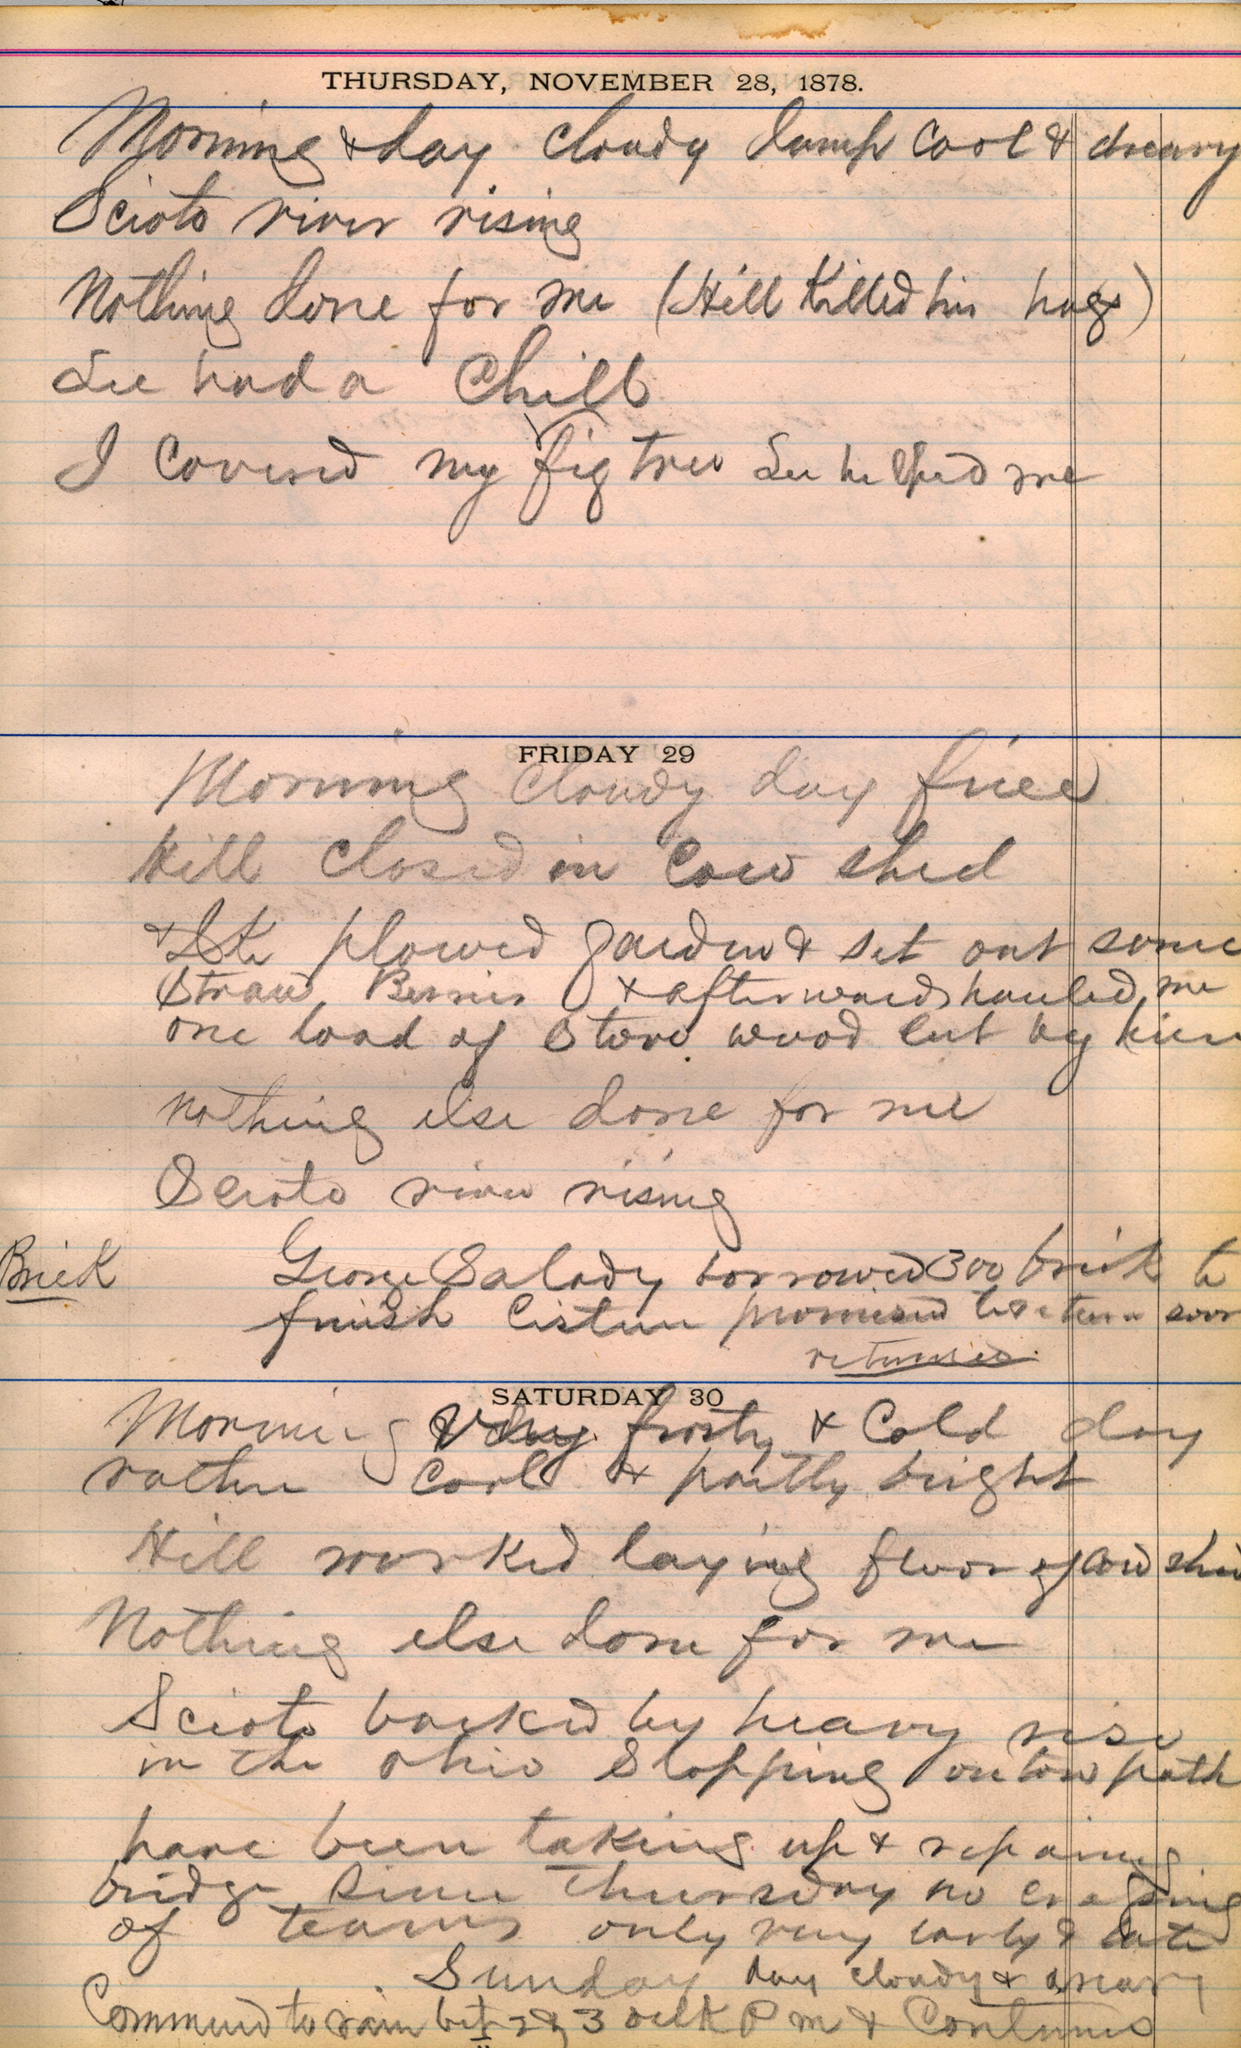 THURSDAY, NOVEMBER 28, 1878.
Morning & day cloudy damp cool & dreary
Scioto river rising
Nothing done for me (Hill Killed his hogs)
Lee had a Chill
I covered my fig tree Lee helped me
FRIDAY 29
Morning cloudy day fine
Hill closed in Cow shed
& plowed garden & set out some
Straw Berries & afterwards hauled me
one load of Stove wood cut by him
nothing else done for me
Scioto river rising
Brick
George Salady borrowed 300 brick to
finish Cistern promised to return soon
returned
SATURDAY 30
Morning Very frosty & Cold day
rather Cool & partly bright
Hill worked laying floor of cow shed
Nothing else done for me
Scioto backed by heavy rise
in the Ohio Slopping on tow path
have been taking up & repairing
bridge Since Thursday no crossing
of teams only very early & late
Sunday day cloudy & dreary
Commenced to rain bet 2 & 3 oclk P m & Continues